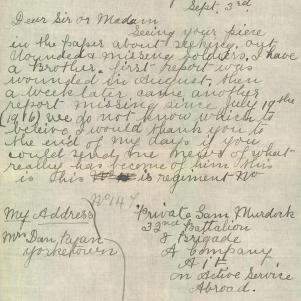 Sept. 3rd
Dear Sir or Madam
Seeing your piece
in the paper about seeking out
Wounded & missing soldiers, I have
a Brother. first report was
wounded in August, then
a week later came another
report missing since July 19the
1916) we do not know which to
beleive, I would thank you to
the end of my days if you
could send me news of what
really has become of him this
is this is regiment No
No 147
My Address
Mrs Dan, Ryan
Yorketown
Private Sam Murdork
32nd Battalion
8 Brigade
A Company
A I F
on Active Service
Abroad.